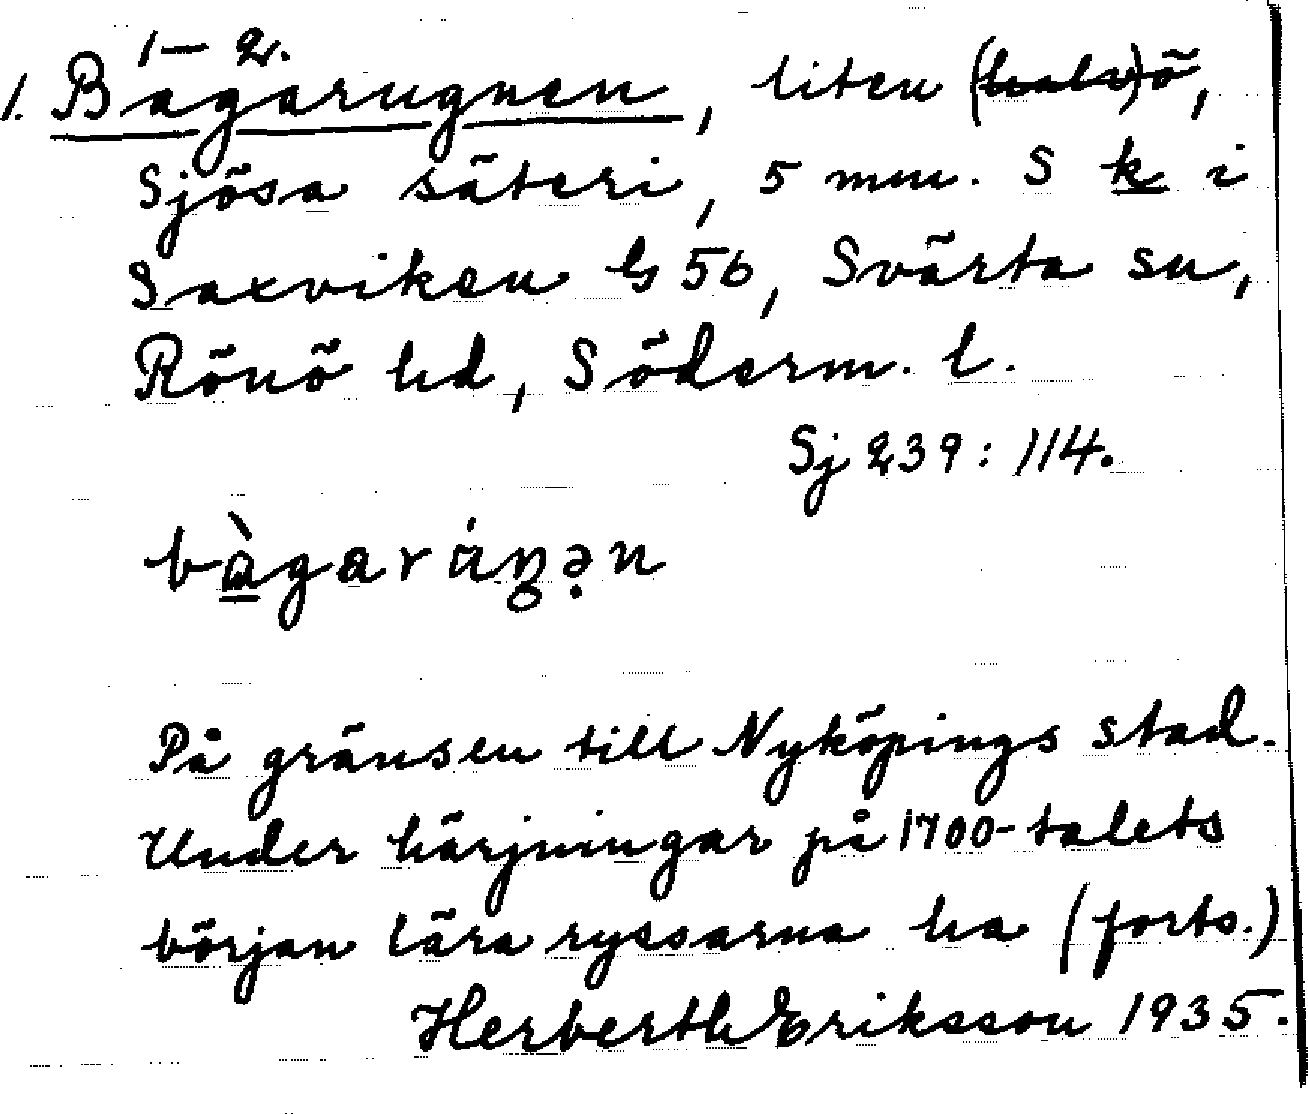 1–2.
1. Bagarugnen, liten (halv)ö,
Sjösa säteri, 5 mm. S k i
Saxviken G 56, Svärta sn,
Rönö hd, Söderm. l.
Sj 239: 114.
bàgaráŋ̥ə̣n
På gränsen till Nyköpings stad.
Under härjningar på 1700-talets
början lära ryssarna ha (forts.)
Herberth Eriksson 1935.